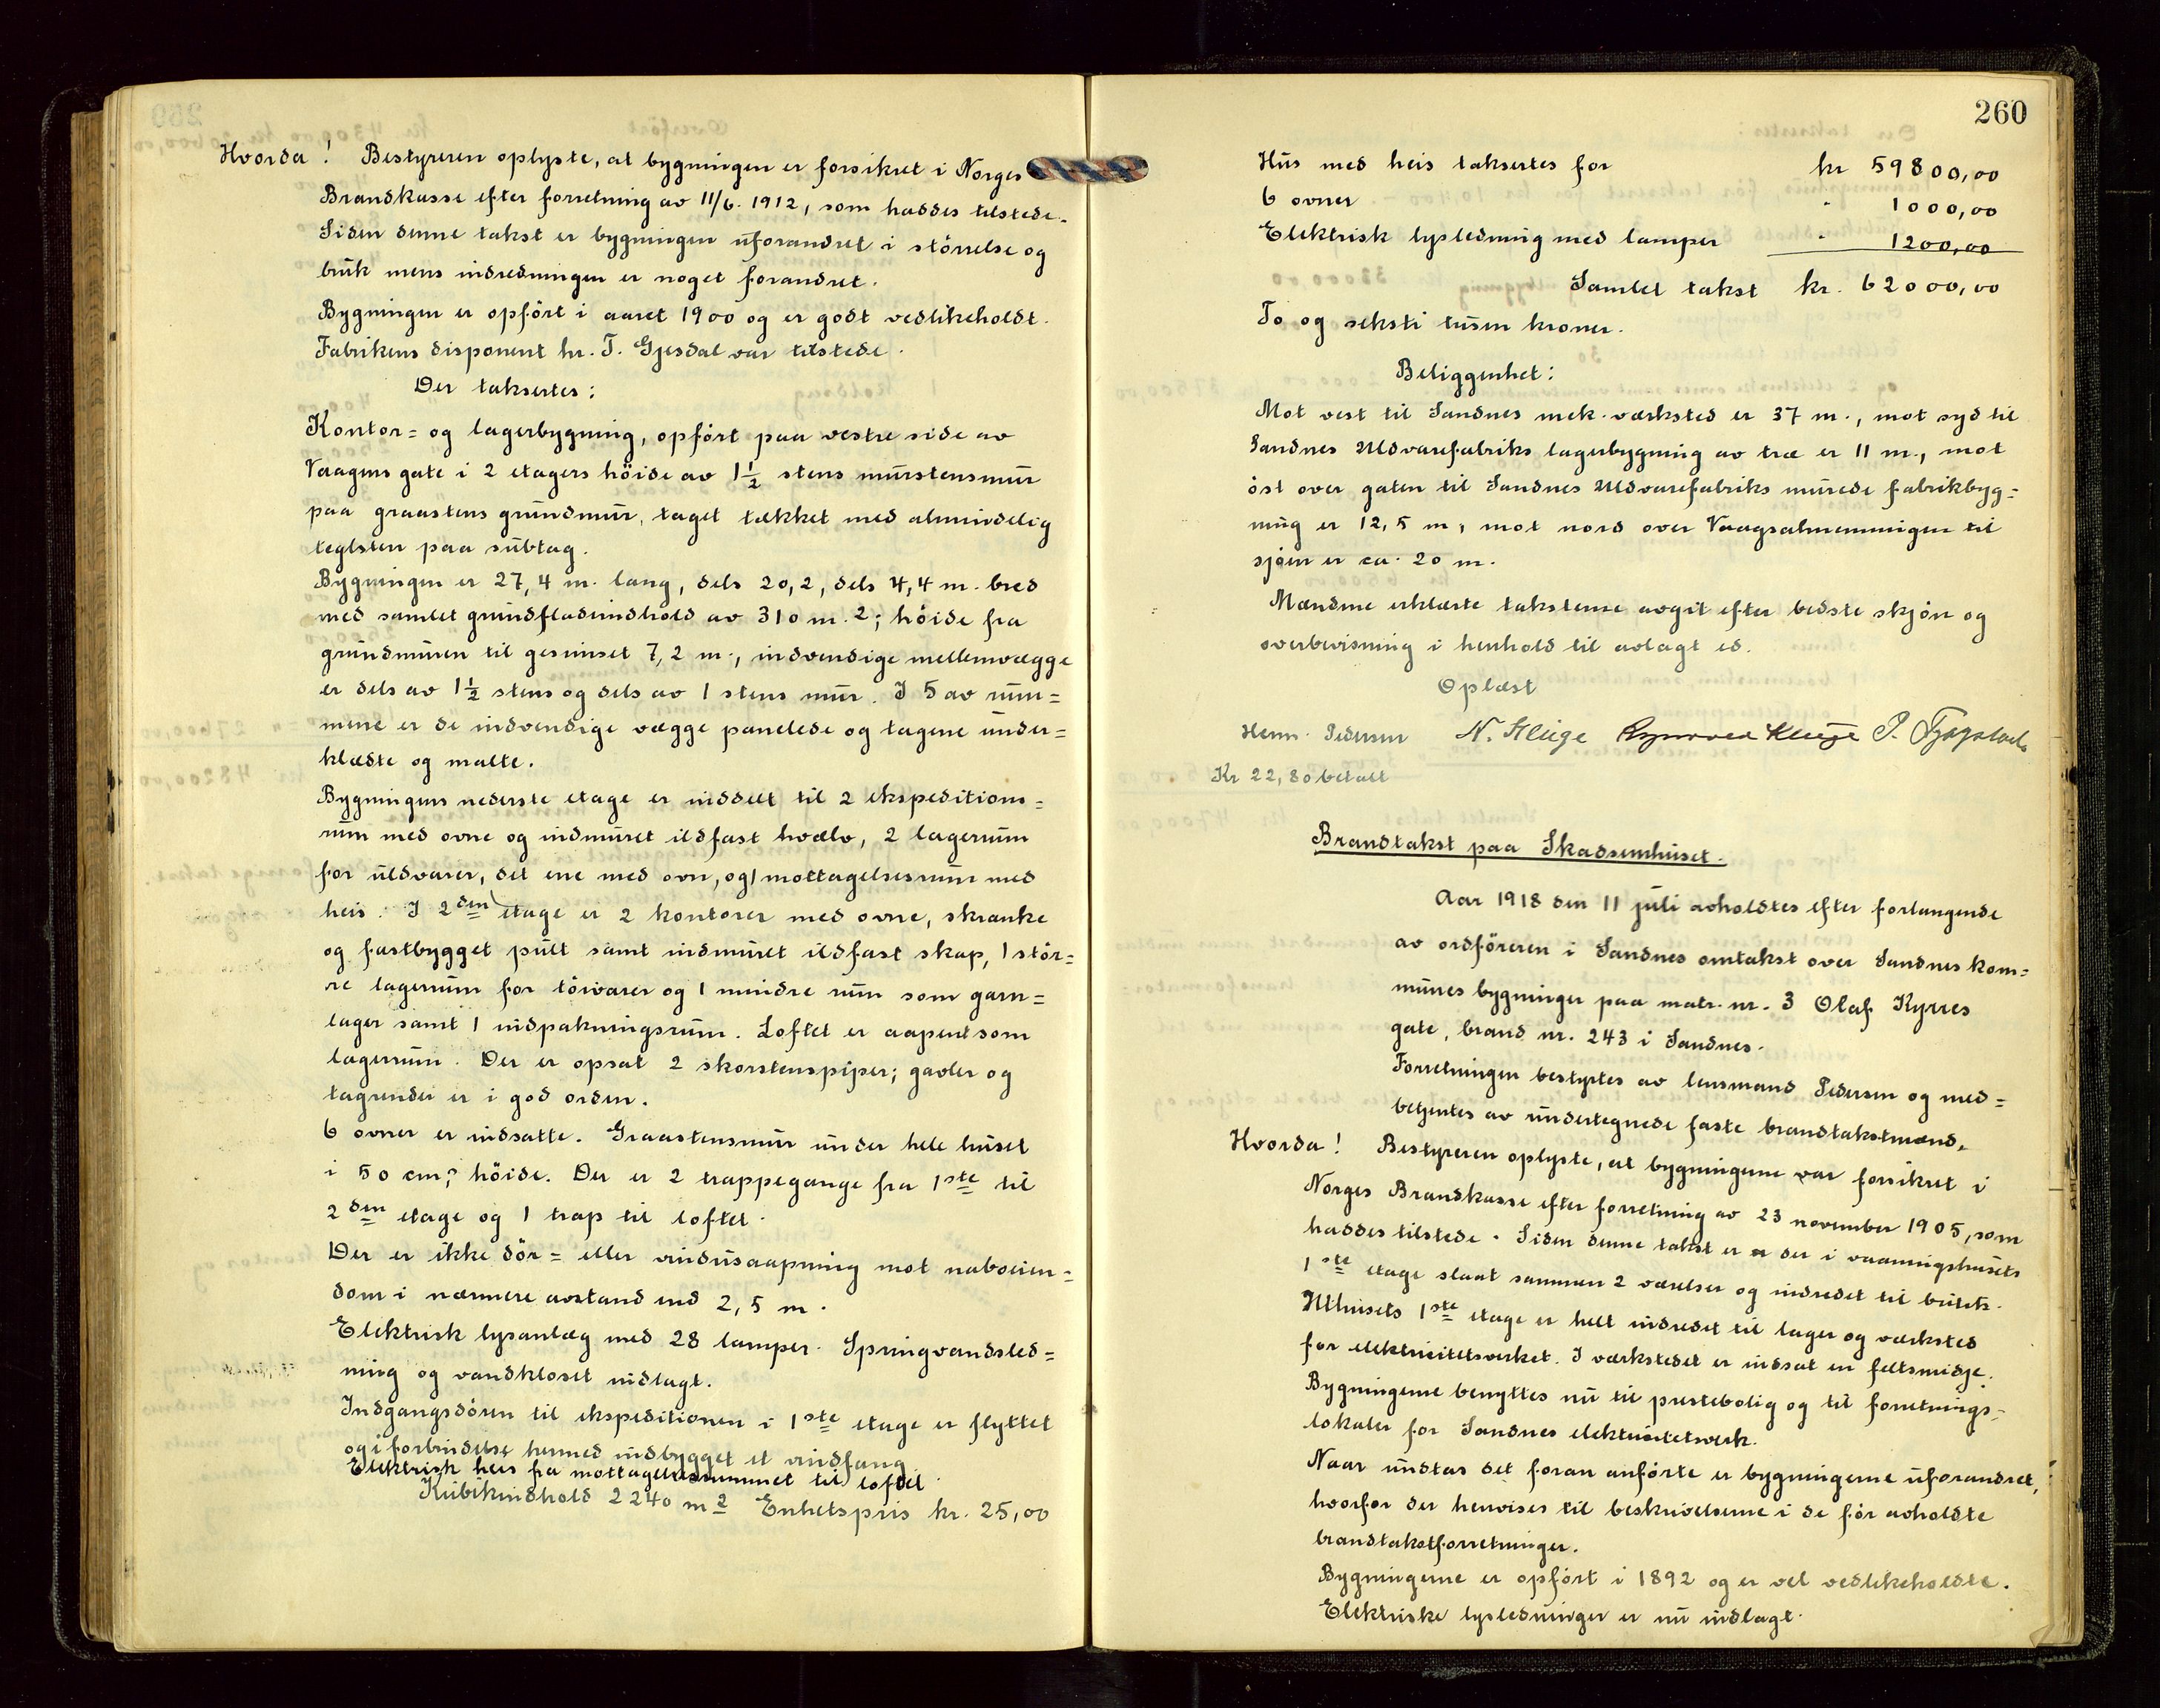 Hvorda! Bestyreren oplyste, at bygningen er forsikret i Norges
Brandkasse efter forretning av 11/6. 1912, som haddes tilstede.
Siden denne takst er bygningen uforandret i störrelse og
bruk mens indredningen er noget forandret.
Bygningen er opfört i aaret 1900 og er godt vedlikeholdt.
Fabrikens disponent hr. T. Gjesdal var tilstede.
Der taksertes:
Kontor= og lagerbygning, opfört paa vestre side av
Vaagens gate i 2 etagers höide av 1 1/2 stens murstensmur
paa graastens grundmur, taget tækket med almindelig
teglsten paa subtag.
Bygningen er 27,4 m. lang, dels 20,2, dels 4,4 m. bred
med samlet grundfladeindhold av 310 m.2; höide fra
grundmuren til gesimset 7,2 m., indvendige mellemvægge
er dels av 1 1/2 stens og dels av 1 stens mur. I 5 av rum=
mene er de indvendige vægge panelede og tagene under=
klædte og malte.
Bygningens nederste etage er inddelt til 2 ekspeditions=
rum med ovne og indmuret ildfast hvælv, 2 lagerrum
for uldvarer, det ene med ovn, og 1 mottagelsesrum med
heis. I 2den etage er 2 kontorer med ovne, skranke
og fastbygget pult samt indmuret ildfast skap, 1 stör=
re lagerrum for töivarer og 1 mindre rum som garn=
lager samt 1 indpakningsrum. Loftet er aapent som
lagerrum. Der er opsat 2 skorstenspiper; gavler og
tagrender er i god orden.
6 ovner er indsatte. Graastensmur under hele huset
i 50 cm.s höide. Der er 2 trappegange fra 1ste til
2den etage og 1 trap til loftet.
Der er ikke dör= eller vindusaapning mot naboeien=
dom i nærmere avstand end 2,5 m.
Elektrisk lysanlæg med 28 lamper. Springvandsled=
ning og vandkloset indlagt.
Indgangsdören til ekspeditionen i 1ste etage er flyttet
og i forbindelse hermed indbygget et vindfang.
Elektrisk heis fra mottagelsesrummet til loftet.
Kubikindhold 2240 m2 Enhetspris kr. 25,00
260
Hus med heis taksertes for kr 59800,00
6 ovner " 1000,00
Elektrisk lysledning med lamper " 1200,00
Samlet takst kr. 62000,00
To og seksti tusen kroner.
Beliggenhet:
Mot vest til Sandnes mek. værksted er 37 m., mot syd til
Sandnes Uldvarefabriks lagerbygning av træ er 11 m., mot
öst over gaten til Sandnes Uldvarefabriks murede fabrikbyg=
ning er 12,5 m, mot nord over Vaagsalmenningen til
sjöen er ca. 20 m.
Mændene erklærte taksterne avgit efter bedste skjön og
overbevisning i henhold til avlagt ed.
Oplæst
Henr. Pedersen N. Kluge Kluge P.
Kr 22,80 betalt
Brandtakst paa Skadsemhuset.
Aar 1918 den 11 juli avholdtes efter forlangende
av ordföreren i Sandnes omtakst over Sandnes kom=
munes bygninger paa matr. nr. 3 Olaf Kyrres
gate, brand nr. 243 i Sandnes.
Forretningen bestyrtes av lensmand Pedersen og med=
betjentes av undertegnede faste brandtakstmænd.
Hvorda! Bestyreren oplyste, at bygningerne var forsikret i
Norges Brandkasse efter forretning av 23 november 1905, som
haddes tilstede. Siden denne takst er der i vaaningshusets
1ste etage slaat sammen 2 værelser og indredet til butik.
Uthusets 1ste etage er helt indredet til lager og værksted
for elektricitetsverket. I værkstedet er indsat en feltsmidje.
Bygningerne benyttes nu til prestebolig og til forretnings=
lokaler for Sandnes elektricitetsverk.
Naar undtas det foran anförte er bygningerne uforandret,
hvorfor der henvises til beskrivelserne i de för avholdte
brandtakstforretninger.
Bygningerne er opfört i 1892 og er vel vedlikeholdte.
Elektriske lysledninger er nu indlagt.